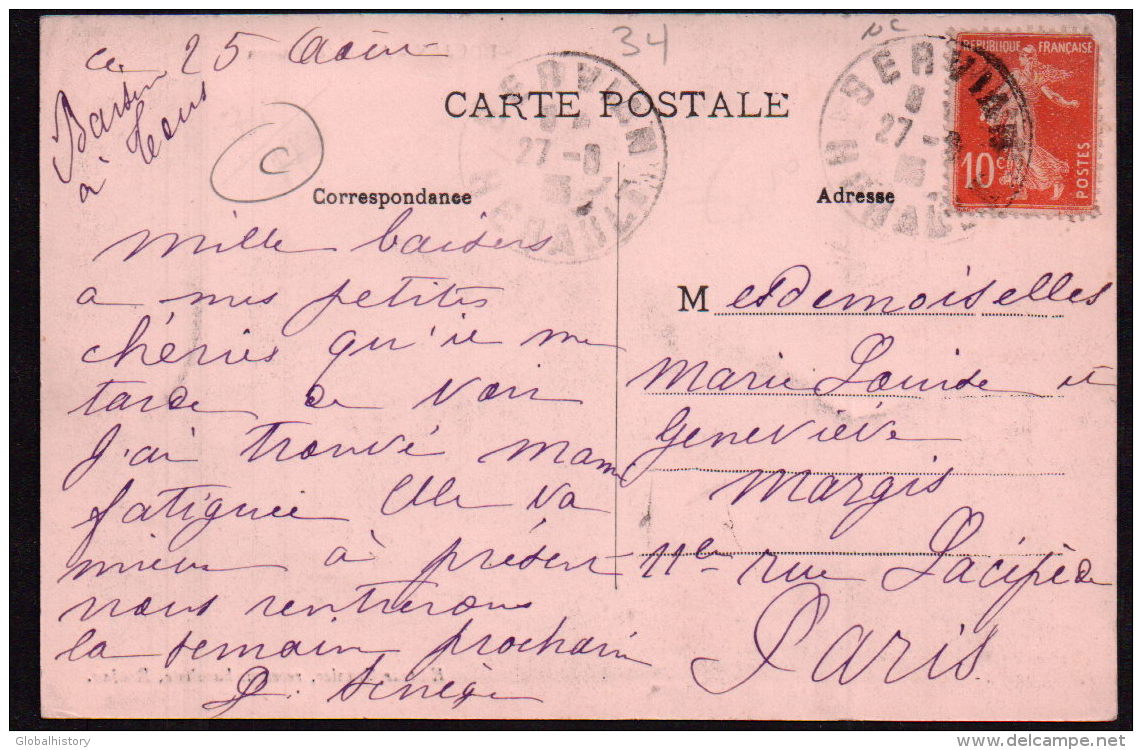 ce 25 Août
34
CARTE POSTALE
SERVIEN
27-8
HERAULT
SERVIAN
27-8
HERAULT
REPUBLIQUE FRANÇAISE
10 c
POSTES
à tous
C
Correspondance
Adresse
mille baisers
a mes petites
chéries qu'il me
tarde de voir
j'ai trouvé mam
fatiguée Elle va
mieux à présent
nous rentrerons
la semain prochain
Mesdemoiselles
Marie Louise et
Geneviève
Margis
11 rue Lacépède
Paris
Globalhistory
delcampe.net